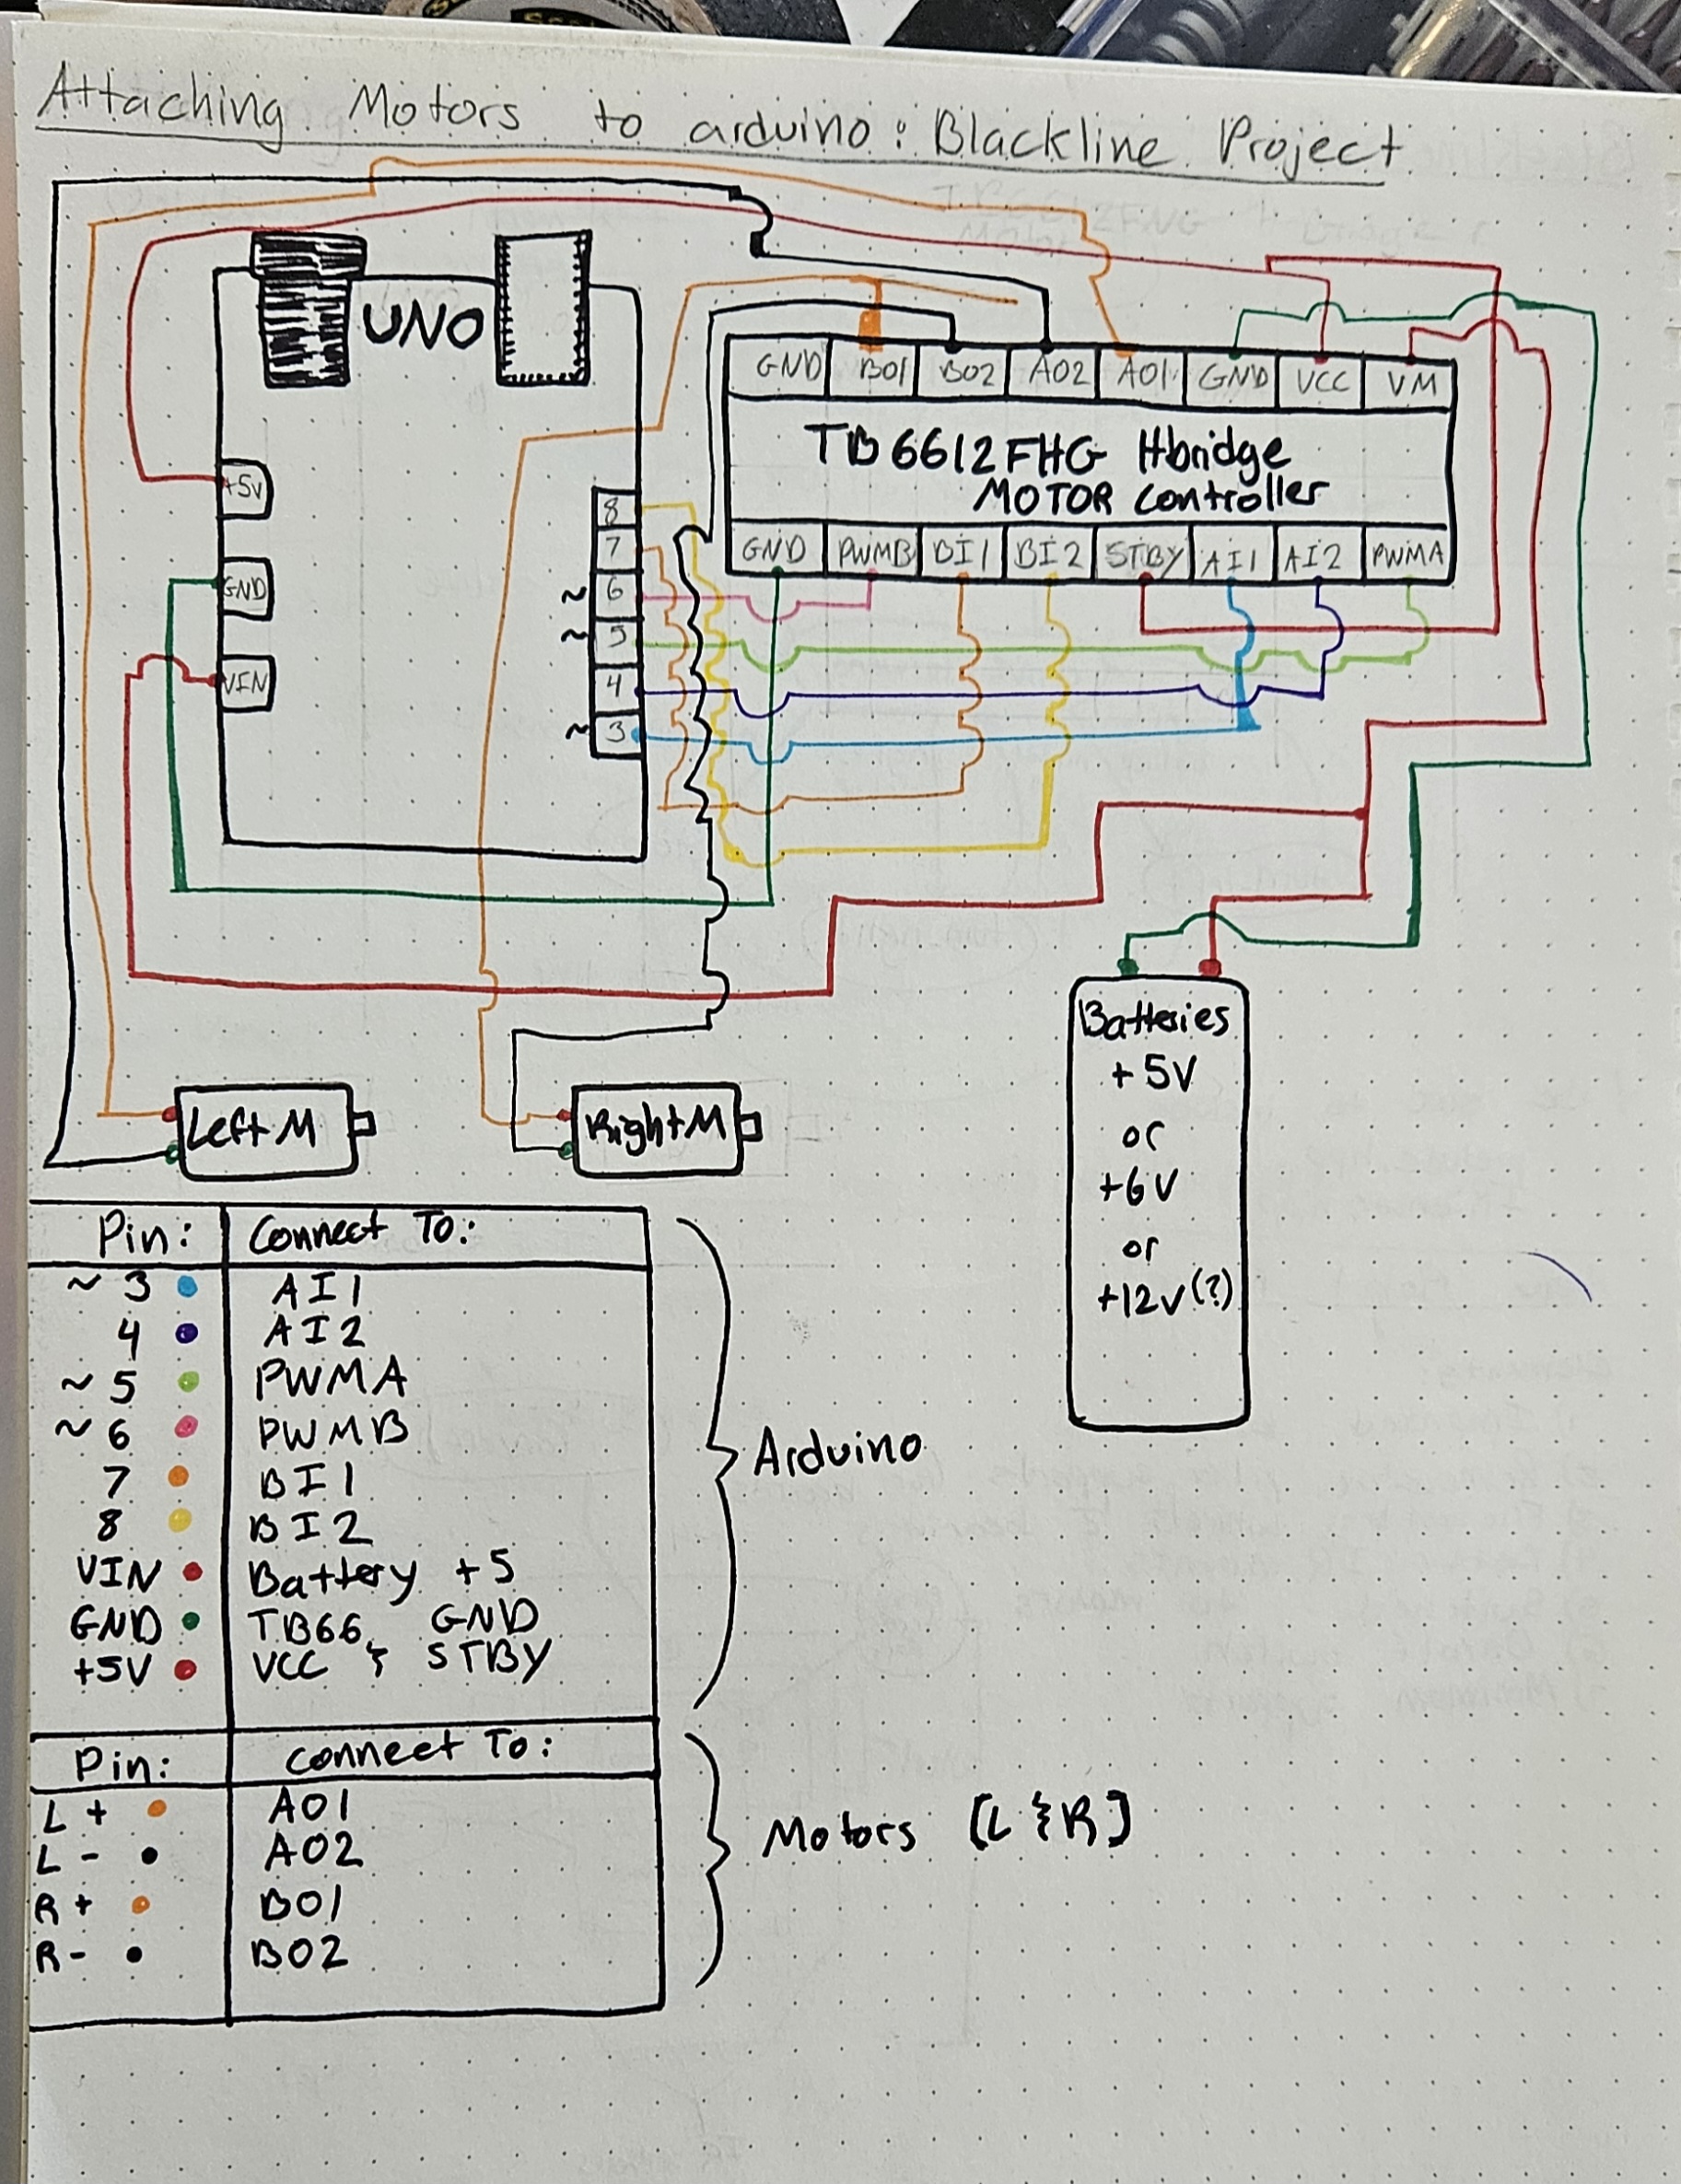 Attaching Motors to arduino: Blackline Project
UNO
+5V
GND
VIN
8
7
~ 6
~ 5
4
~ 3
GND B01 B02 A02 A01 GND VCC VM
TB6612FHG Hbridge
MOTOR Controller
GND PWMB BI1 BI2 STBY AI1 AI2 PWMA
Left M
Right M
Batteries
+5V
or
+6V
or
+12V(?)
Pin: Connect To:
~ 3 AI1
4 AI2
~ 5 PWMA
~ 6 PWMB
7 BI1
8 BI2
VIN Battery +5
GND TB66, GND
+5V VCC & STBY
Arduino
Pin: Connect To:
L + A01
L - A02
R + B01
R - B02
Motors [L & R]